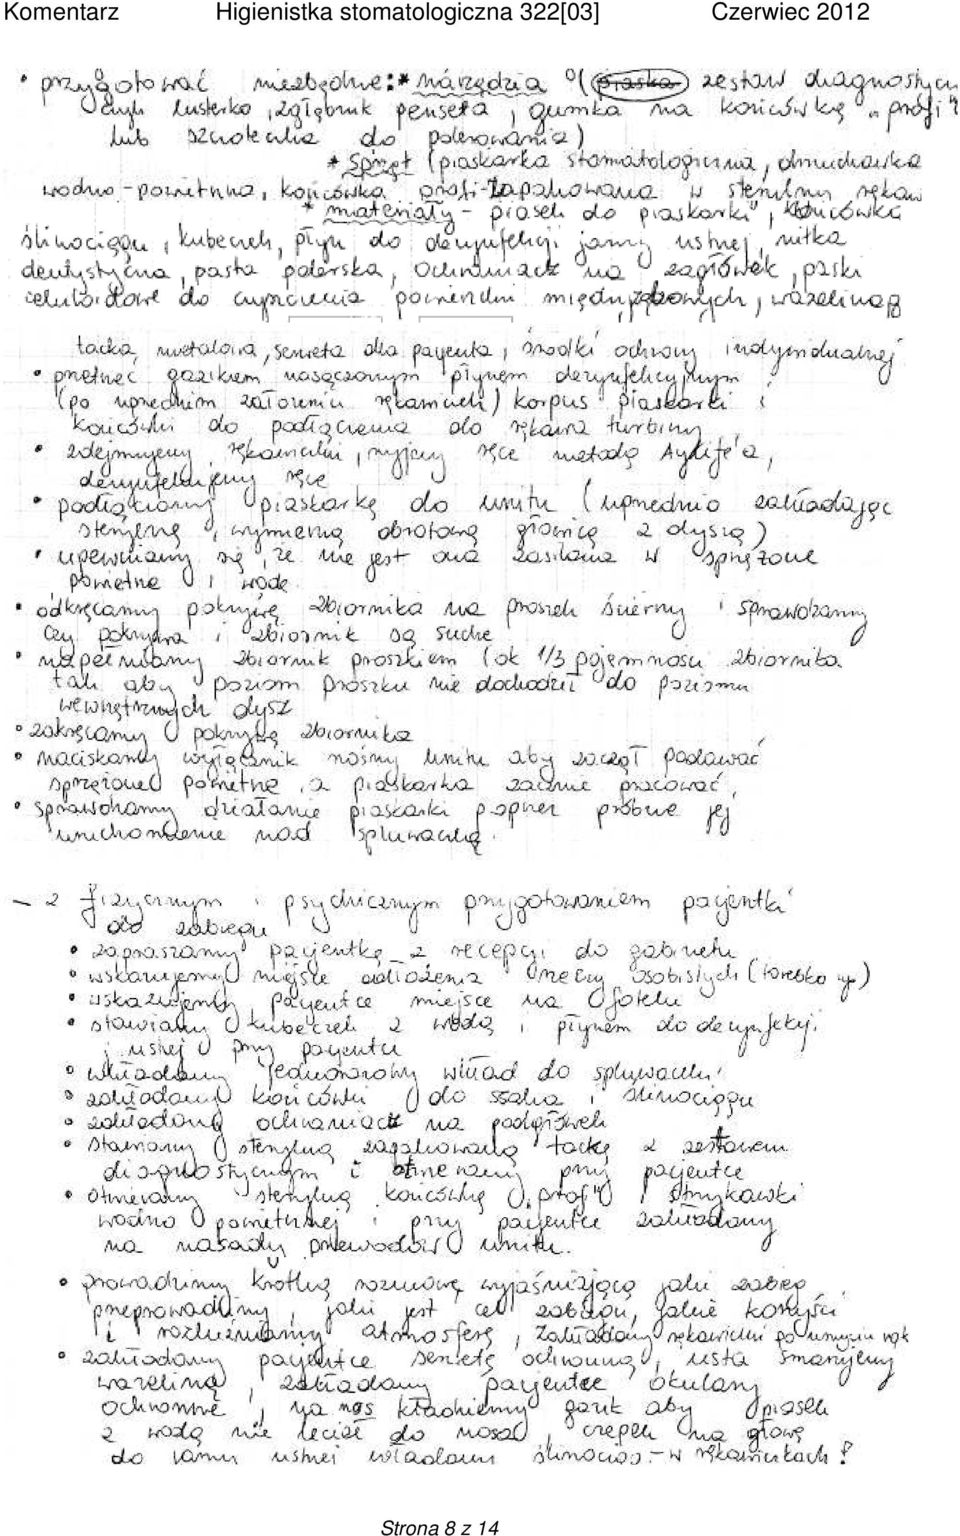 Komentarz Higienistka stomatologiczna 322[03] Czerwiec 2012
• przygotować niezbędne: * narzędzia (piaska zestaw diagnostyczn
czyli lusterko, zgłębnik pęseta, gumka na końcówkę "profi"
lub szczoteczka do polerowania)
* Sprzęt (piaskarka stomatologiczna, dmuchawka
wodno-powietrzna, końcówka profi-zapakowana w sterylny rękaw
* materiały - piasek do piaskarki, końcówka
ślinociągu, kubeczek, płyn do dezynfekcji jamy ustnej, nitka
dentystyczna, pasta polerska, ochraniacz na zagłówek, paski
celuloidowe do czyszczenia powierzchni międzyzębowych, wazelina
tacka metalowa, serweta dla pacjenta, środki ochrony indywidualnej
• przetrzeć gazikiem nasączonym płynem dezynfekcyjnym
(po uprzednim założeniu rękawiczek) korpus piaskarki i
końcówki do podłączenia do rękawa turbiny
• zdejmujemy rękawiczki, myjemy ręce metodą Aylife'a,
dezynfekujemy ręce
• podłączamy piaskarkę do unitu (uprzednio zakładając
sterylną, wymienną obrotową głowicę z dyszą)
• upewniamy się, że nie jest ona zasilana w sprężone
powietrze i wodę
• odkręcamy pokrywę zbiornika na proszek ścierny i sprawdzamy
czy pokrywa i zbiornik są suche
• napełniamy zbiornik proszkiem (ok 1/3 pojemności zbiornika
tak aby poziom proszku nie dochodził do poziomu
wewnętrznych dysz
• zakręcamy pokrywkę zbiornika
• naciskamy wyłącznik nożny unitu aby zaczął podawać
sprężone powietrze, a piaskarka zacznie pracować,
• sprawdzamy działanie piaskarki poprzez próbne jej
uruchomienie nad spluwaczką.
– z fizycznym i psychicznym przygotowaniem pacjentki
do zabiegu
• zapraszamy pacjentkę z recepcji do gabinetu
• wskazujemy miejsce odłożenia rzeczy osobistych (torebka np)
• wskazujemy pacjentce miejsce na fotelu
• stawiamy kubeczek z wodą i płynem do dezynfekcji
j. ustnej przy pacjentce
• wkładamy jednorazowy wkład do spluwaczki
• zakładamy końcówki do ssaka i ślinociągu
• zakładamy ochraniacz na podgłówek
• stawiamy sterylną zapakowaną tackę z zestawem
diagnostycznym i otwieramy przy pacjentce
• otwieramy sterylną końcówkę "profi" i strzykawki
wodno powietrznej i przy pacjentce zakładamy
na nasady przewodów unitu.
• prowadzimy krótką rozmowę wyjaśniającą jaki zabieg
przeprowadzimy, jaki jest cel zabiegu, jakie korzyści
i rozluźniamy atmosferę, zakładamy rękawiczki po umyciu rąk
• zakładamy pacjentce serwetę ochronną, usta smarujemy
wazeliną, zakładamy pacjentce okulary
ochronne, na nos kładziemy gazik aby piasek
z wodą nie leciał do nosa, czepek na głowę
do jamy ustnej wkładamy ślinociąg - w rękawiczkach!
Strona 8 z 14